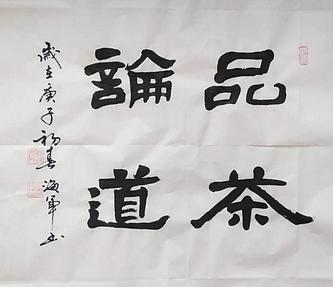 品茶
論道
歲在庚子初春海軍書